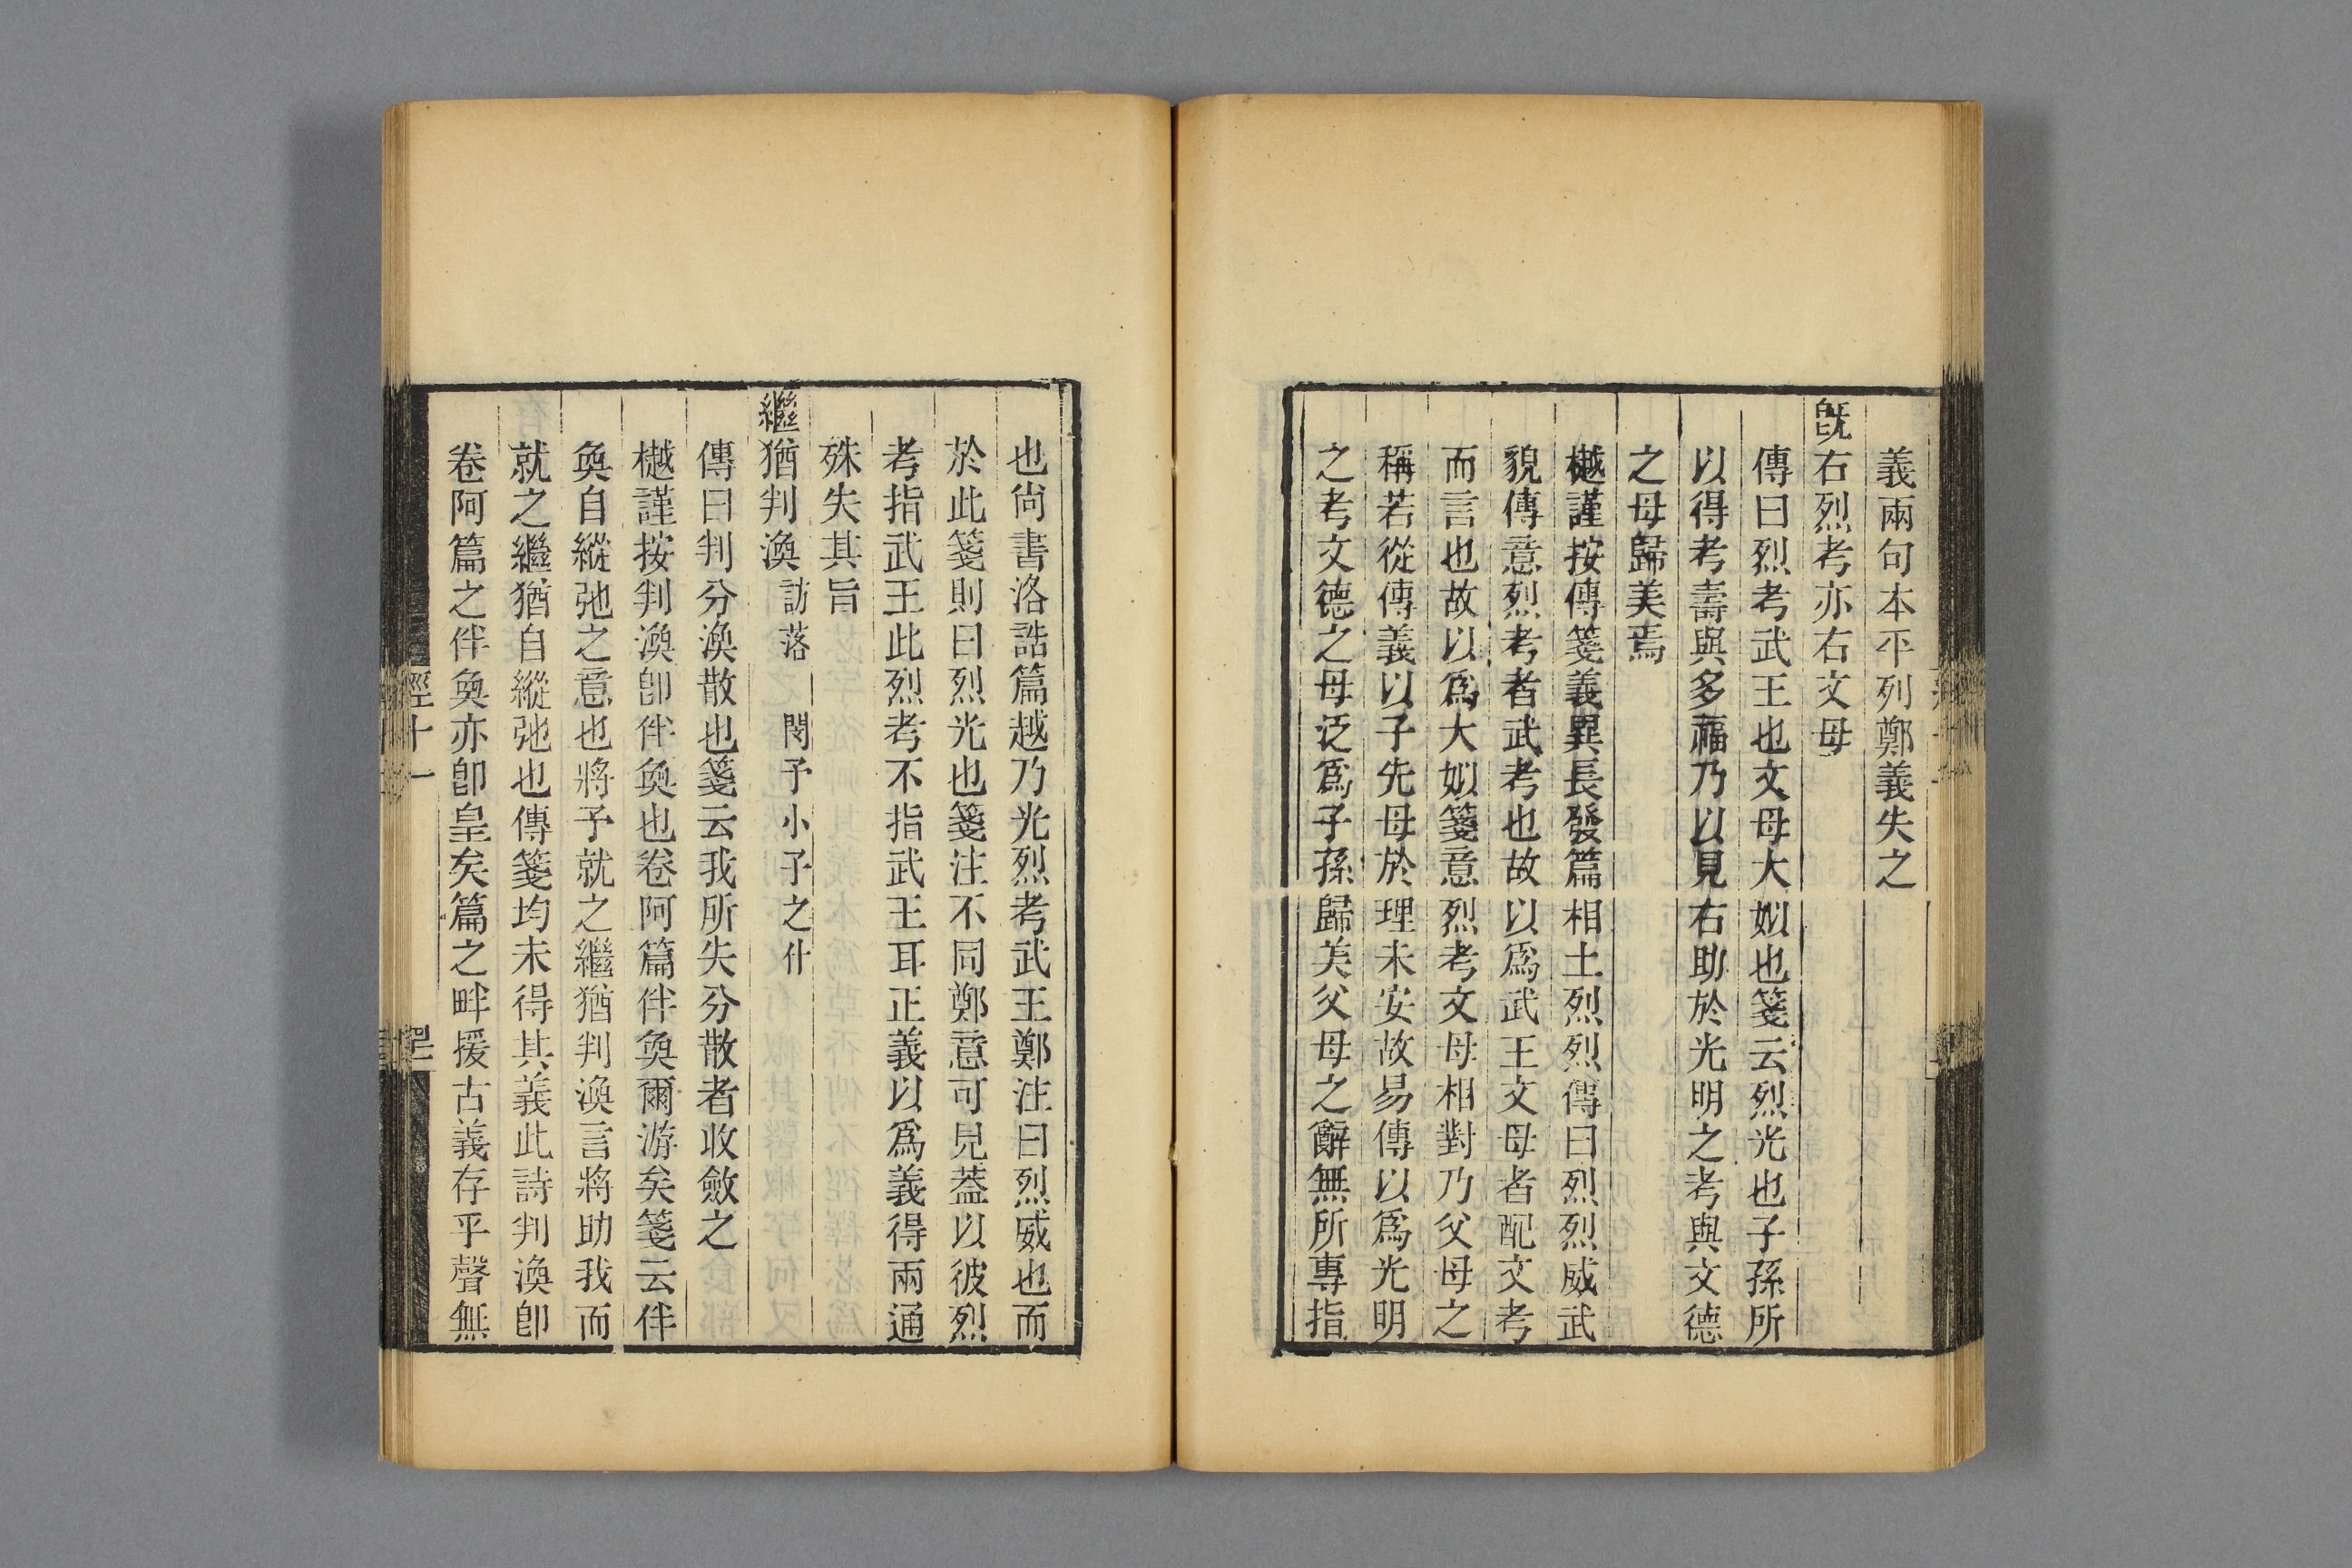 義兩句本平列鄭義失之
旣右烈考亦右文母
傳曰烈考武王也文母大姒也箋云烈光也子孫所
以得考壽與多福乃以見右助於光明之考與文德
之母歸美焉
樾謹按傳箋義異長發篇相土烈烈傳曰烈烈威武
貌傳意烈考者武考也故以爲武王文母者配文考
而言也故以爲大姒箋意烈考文母相對乃父母之
稱若從傳義以子先母於理未安故易傳以爲光明
之考文德之母泛爲子孫歸美父母之辭無所專指
也尙書洛誥篇越乃光烈考武王鄭注曰烈威也而
於此箋則曰烈光也箋注不同鄭意可見葢以彼烈
考指武王此烈考不指武王耳正義以爲義得兩通
殊失其旨
繼猶判渙 訪落 閔予小子之什
傳曰判分渙散也箋云我所失分散者收斂之
樾謹按判渙卽伴奐也卷阿篇伴奐爾游矣箋云伴
奐自縱弛之意也將予就之繼猶判渙言將助我而
就之繼猶自縱弛也傳箋均未得其義此詩判渙卽
卷阿篇之伴奐亦卽皇矣篇之畔援古義存乎聲無
經十一